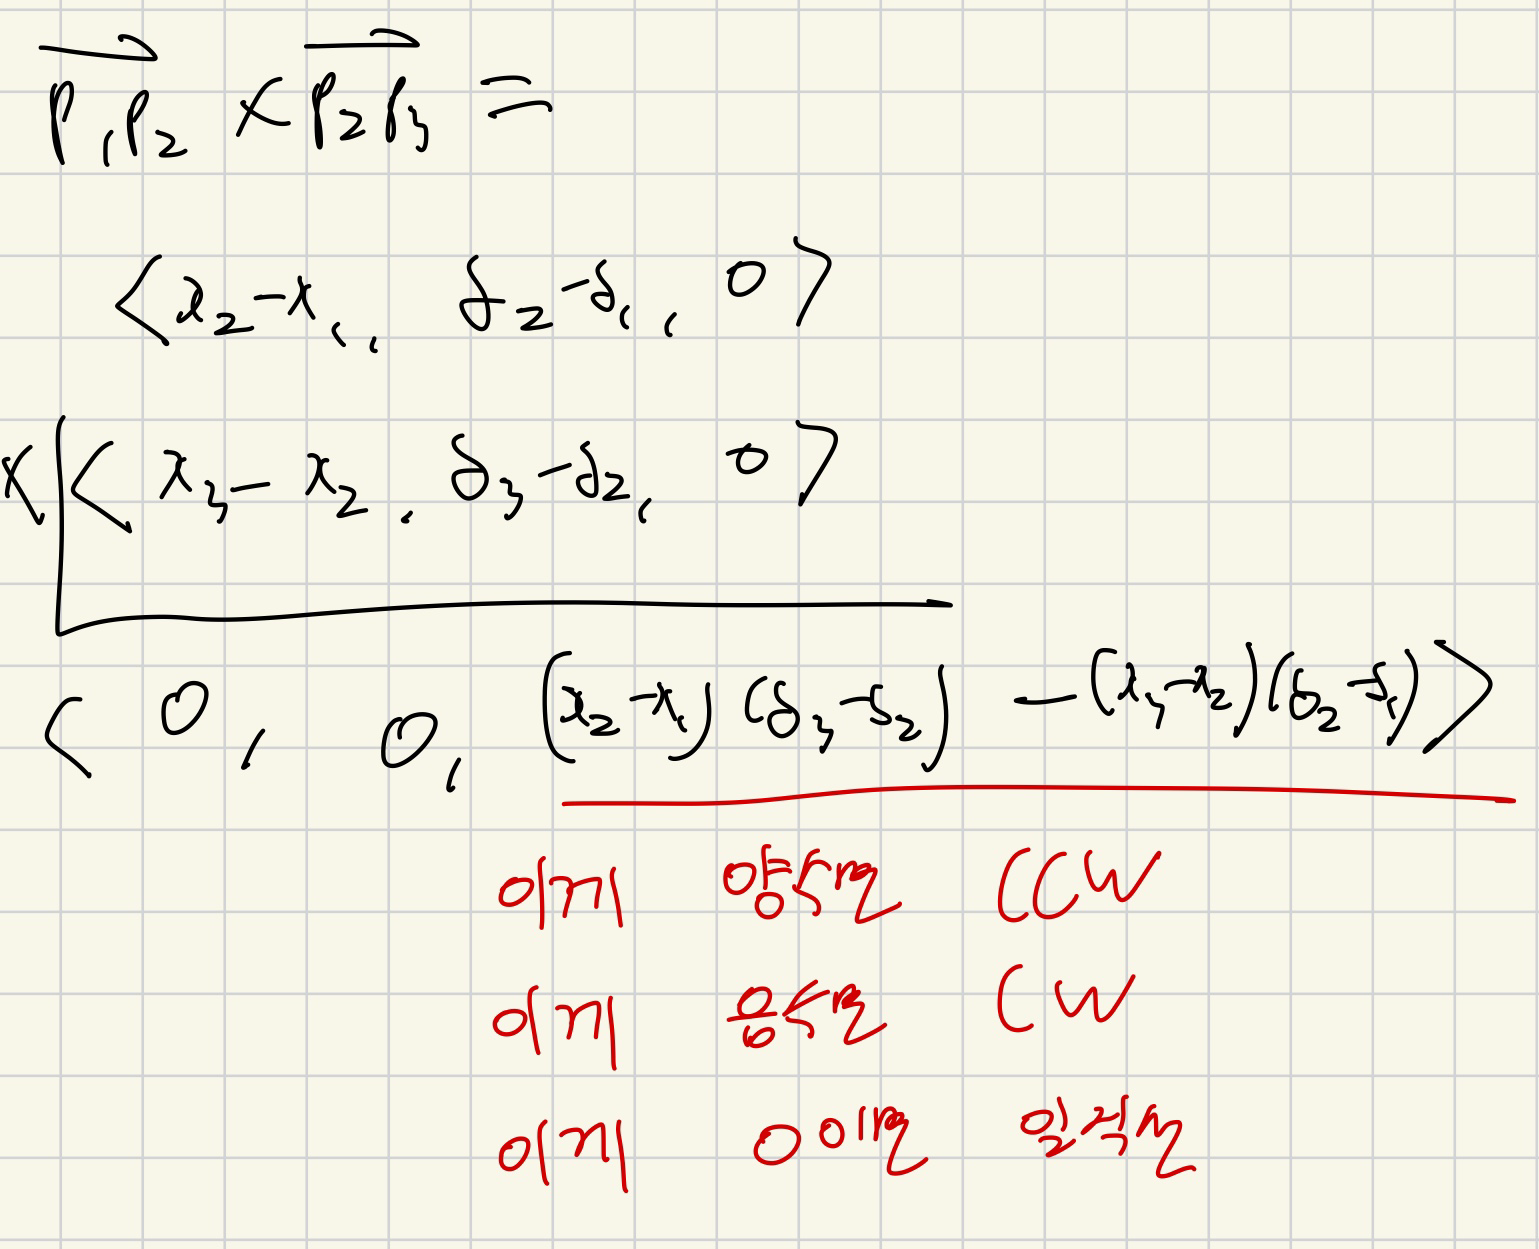 P₁P₂ × P₂P₃ =
<x₂-x₁, y₂-y₁, 0>
× <x₃-x₂, y₃-y₂, 0>
<0, 0, (x₂-x₁)(y₃-y₂) - (x₃-x₂)(y₂-y₁)>
이게 양수면 CCW
이게 음수면 CW
이게 0이면 일직선